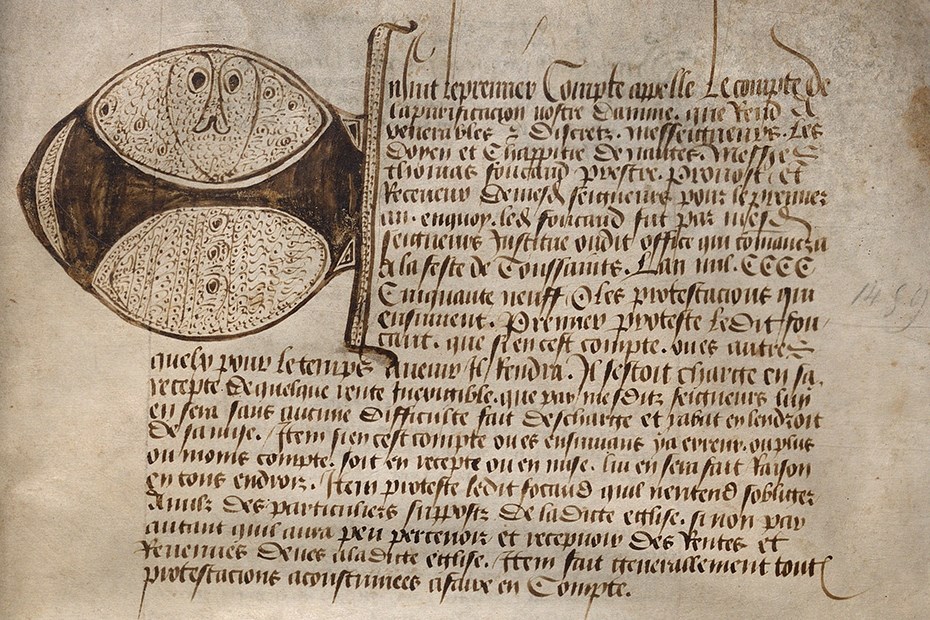 Ensuit le premier Compte appelle Le compte de
la purificacion nostre Damme. que Rend a
venerables & Discretz. messeigneurs. les
Doyen et Chappitre De nantes. messire
thomas foucaud prestre. prevost. et
Receveur De mesd seigneurs pour le premier
an. enquoy. led foucaud fut par mesd
seigneurs Institue oudit office qui commanca
A la feste de Toussaints. Lan mil. CCCC
Cinquante neuff O les protestacions qui
ensuivent. Premier proteste ledit fou
caut. que si en cest compte. ou es autres
quelx pour le temps avenir Il Rendra. Il sestoit charge en sa
recepte. De quelque rente Inexigible. que par mesditz seigneurs luy
en sera sans aucune Difficulte fait descharge et rabat en lendroit
De sa mise. Item si en cest compte ou es ensuivans ya erreur. ou plus
ou moins compte. soit en recepte ou en mise. lui en sera fait Raison
en tous endroiz. Item proteste ledit focaud quil nentend sobliger
A nulz Des particuliers suppostz De ladicte eglise. si non par
autant quil aura peu percevoir et recepvoir Des Rentes et
Revenues Deues a ladicte eglise. Item fait generallement tout
protestacions acoustumees a faire en Compte.
1459